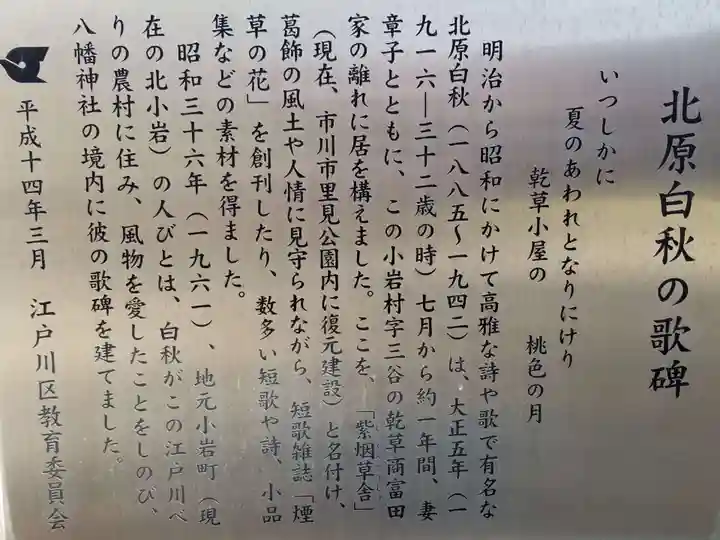 北原白秋の歌碑
いつしかに
夏のあわれとなりにけり
乾草小屋の 桃色の月
明治から昭和にかけて高雅な詩や歌で有名な
北原白秋（一八八五～一九四二）は、大正五年（一
九一六―三十二歳の時）七月から約一年間、妻
章子とともに、この小岩村字三谷の乾草商富田
家の離れに居を構えました。ここを、「紫烟草舎」
（現在、市川市里見公園内に復元建設）と名付け、
葛飾の風土や人情に見守られながら、短歌雑誌「煙
草の花」を創刊したり、数多い短歌や詩、小品
集などの素材を得ました。
昭和三十六年（一九六一）、地元小岩町（現
在の北小岩）の人びとは、白秋がこの江戸川べ
りの農村に住み、風物を愛したことをしのび、
八幡神社の境内に彼の歌碑を建てました。
平成十四年三月 江戸川区教育委員会